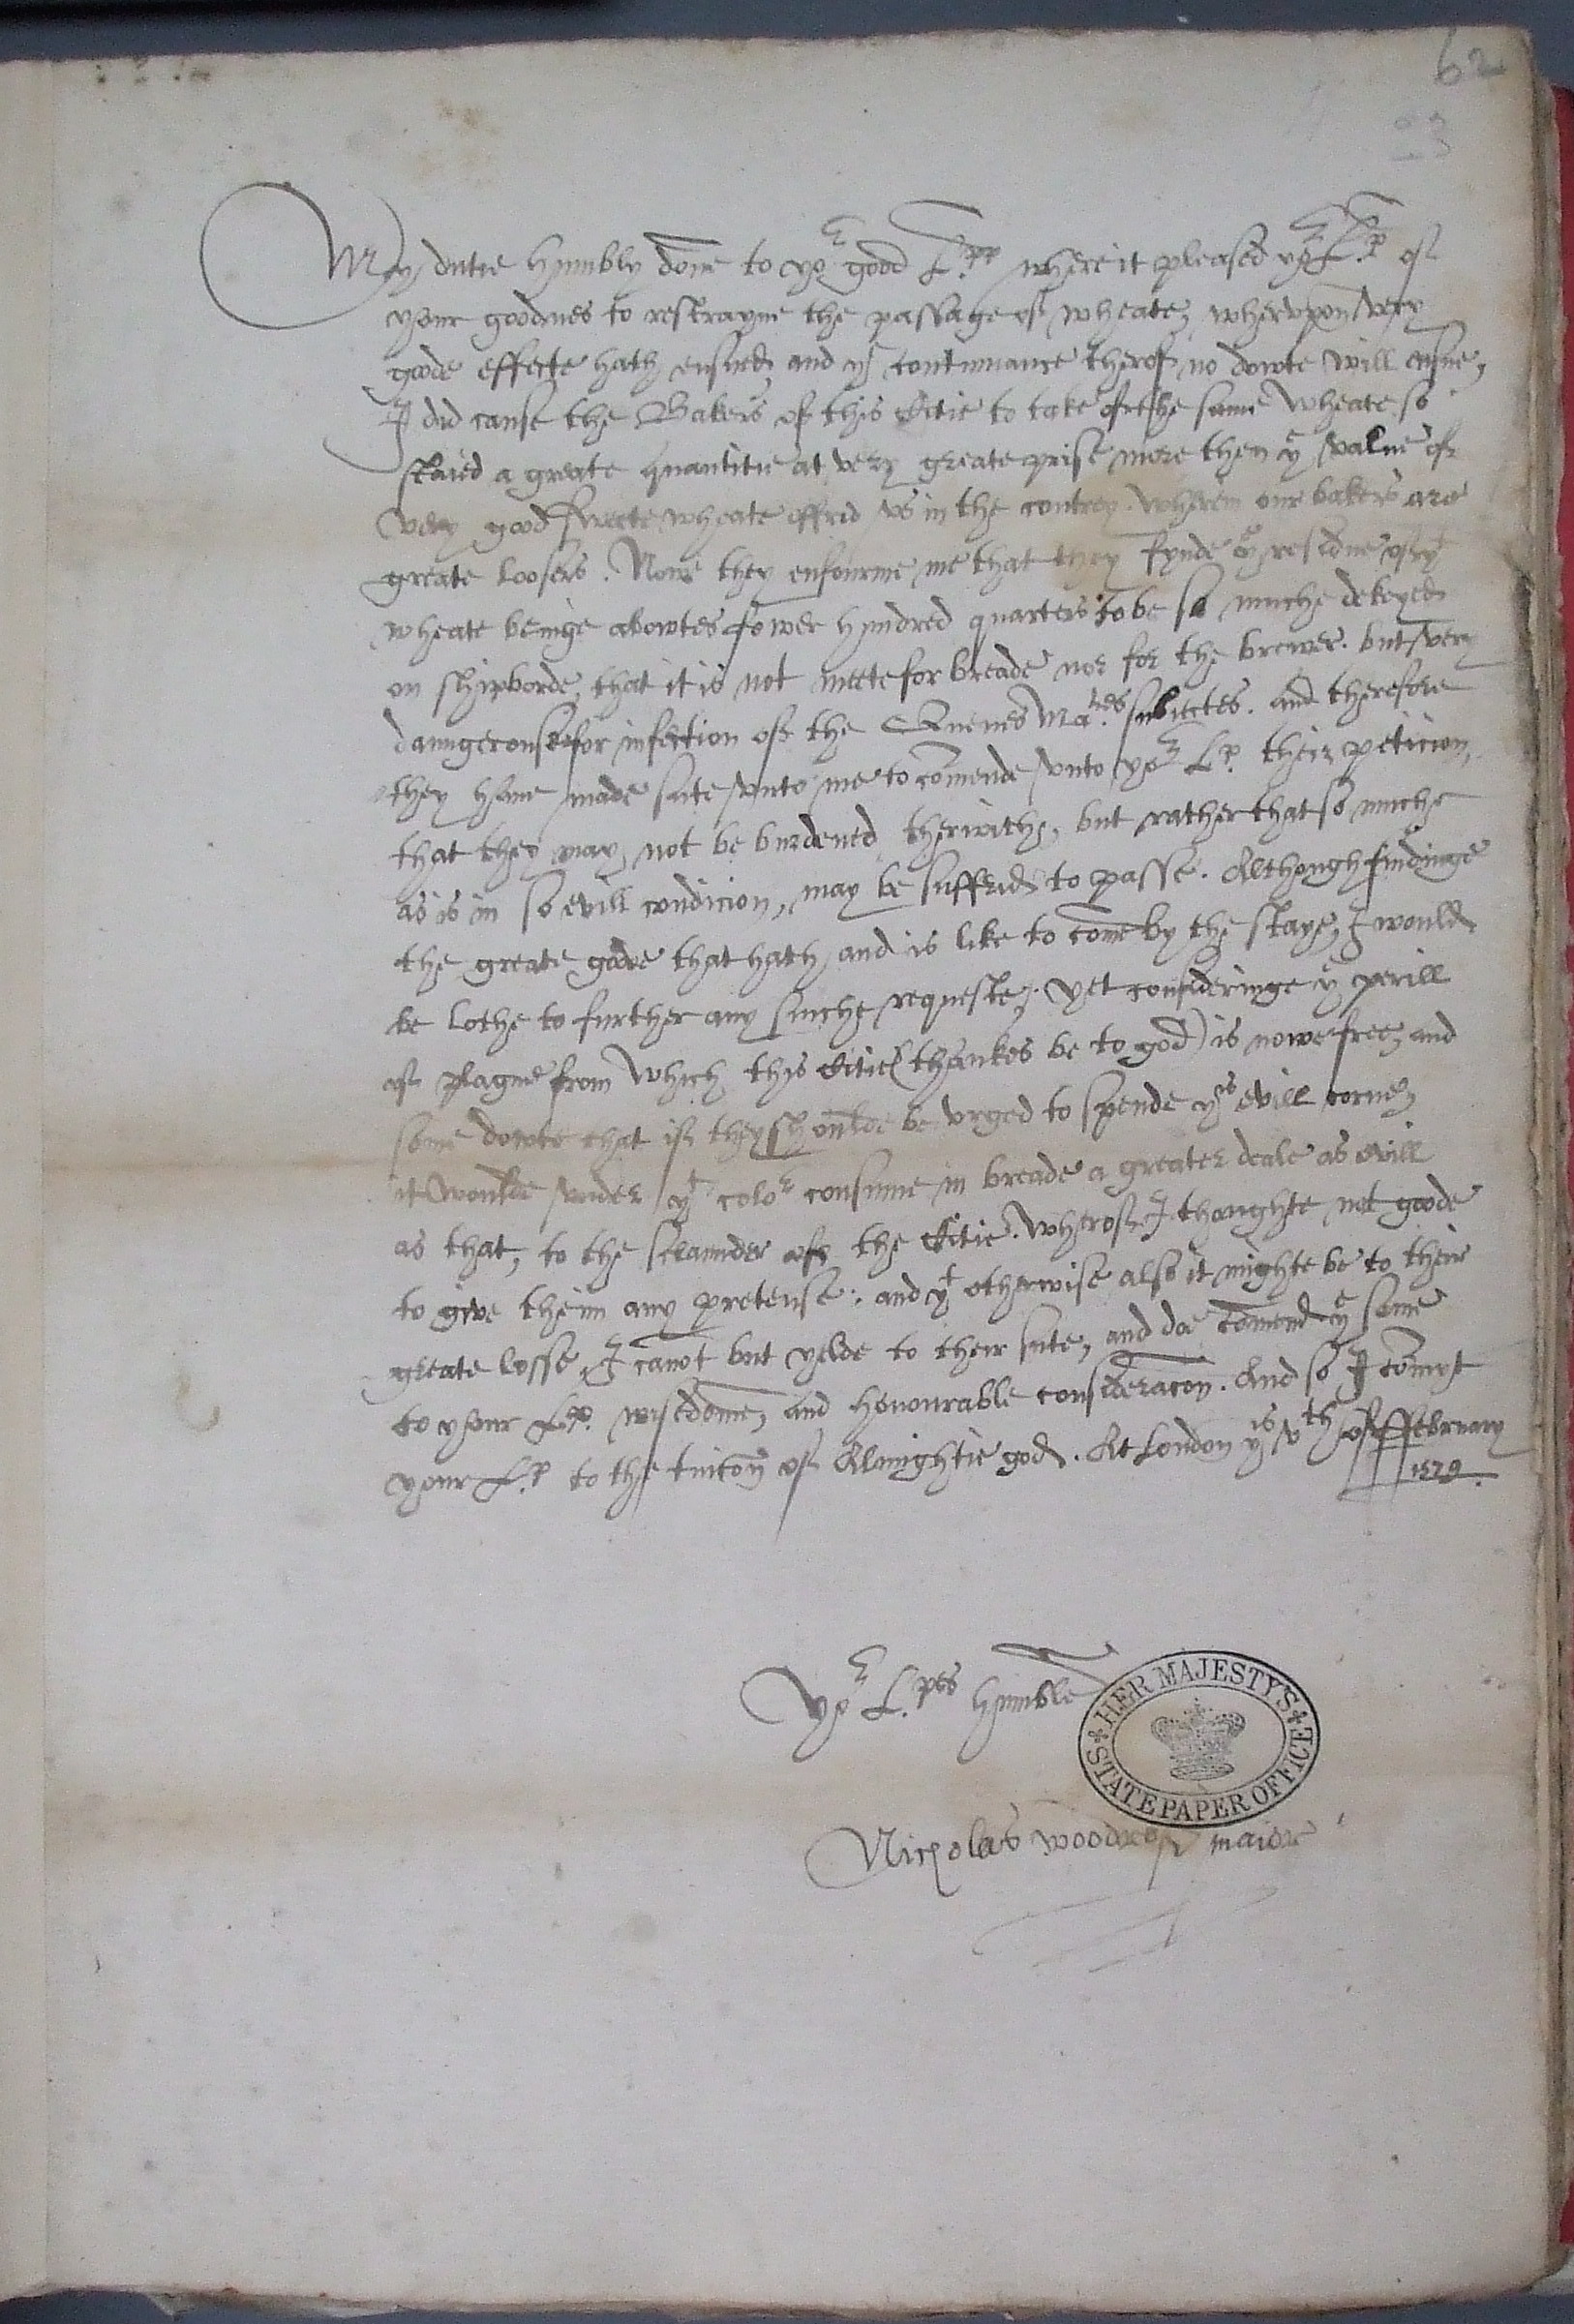 62
23
My dutie humbly done to yor good L.pp where it pleased yor L.p of
your goodnes to restrayne the passage of wheate, wherevpon very
goode effecte hath ensued, and by contynuance therof no dowte will ensue,
I did cause the Bakers of this Citie to take of the same wheate so
staied a greate quantitie at very greate prise more then ye value of
very good sweete wheate offred vs in the contrey. wherein our bakers are
greate loosers. Nowe they enfourme me that they fynde ye residue of ye
wheate beinge abowtes fower hundred quarters to be so muche dekeyed
on shipborde, that it is not meete for breade nor for the brewer. but very
daungerouse for infection of the Quenes Ma.ties subiectes. and therefore
they haue made sute vnto me to comende vnto yor L.p. their peticion,
that they may not be burdened therwithe, but rather that so muche
as is in so evill condicion, may be suffred to passe. Although findinge
the greate goode that hath, and is like to come by the staye, I would
be lothe to further any suche requeste, yet consideringe ye perill
of plague from which this Citie (thankes be to god) is nowe free, and
some dowte that if they shoulde be vrged to spende ys evill corne,
it woulde vnder yt color consume in breade a greater deale as evill
as that, to the sclaunder of the Citie. Wherof I thoughte not goode
to give theim any pretense: and yt otherwise also it mighte be to their
greate losse, I canot but yelde to their sute, and doe comend ye same
to your L.p. wisedome, and honourable consideracon. And so I comyt
your L.p to the tuicon of Almightie god. At London ys vth of ffebruary
1579.
Yor L.pps humble
HER MAJESTY'S STATE PAPER OFFICE
Nicholas woodrof maior